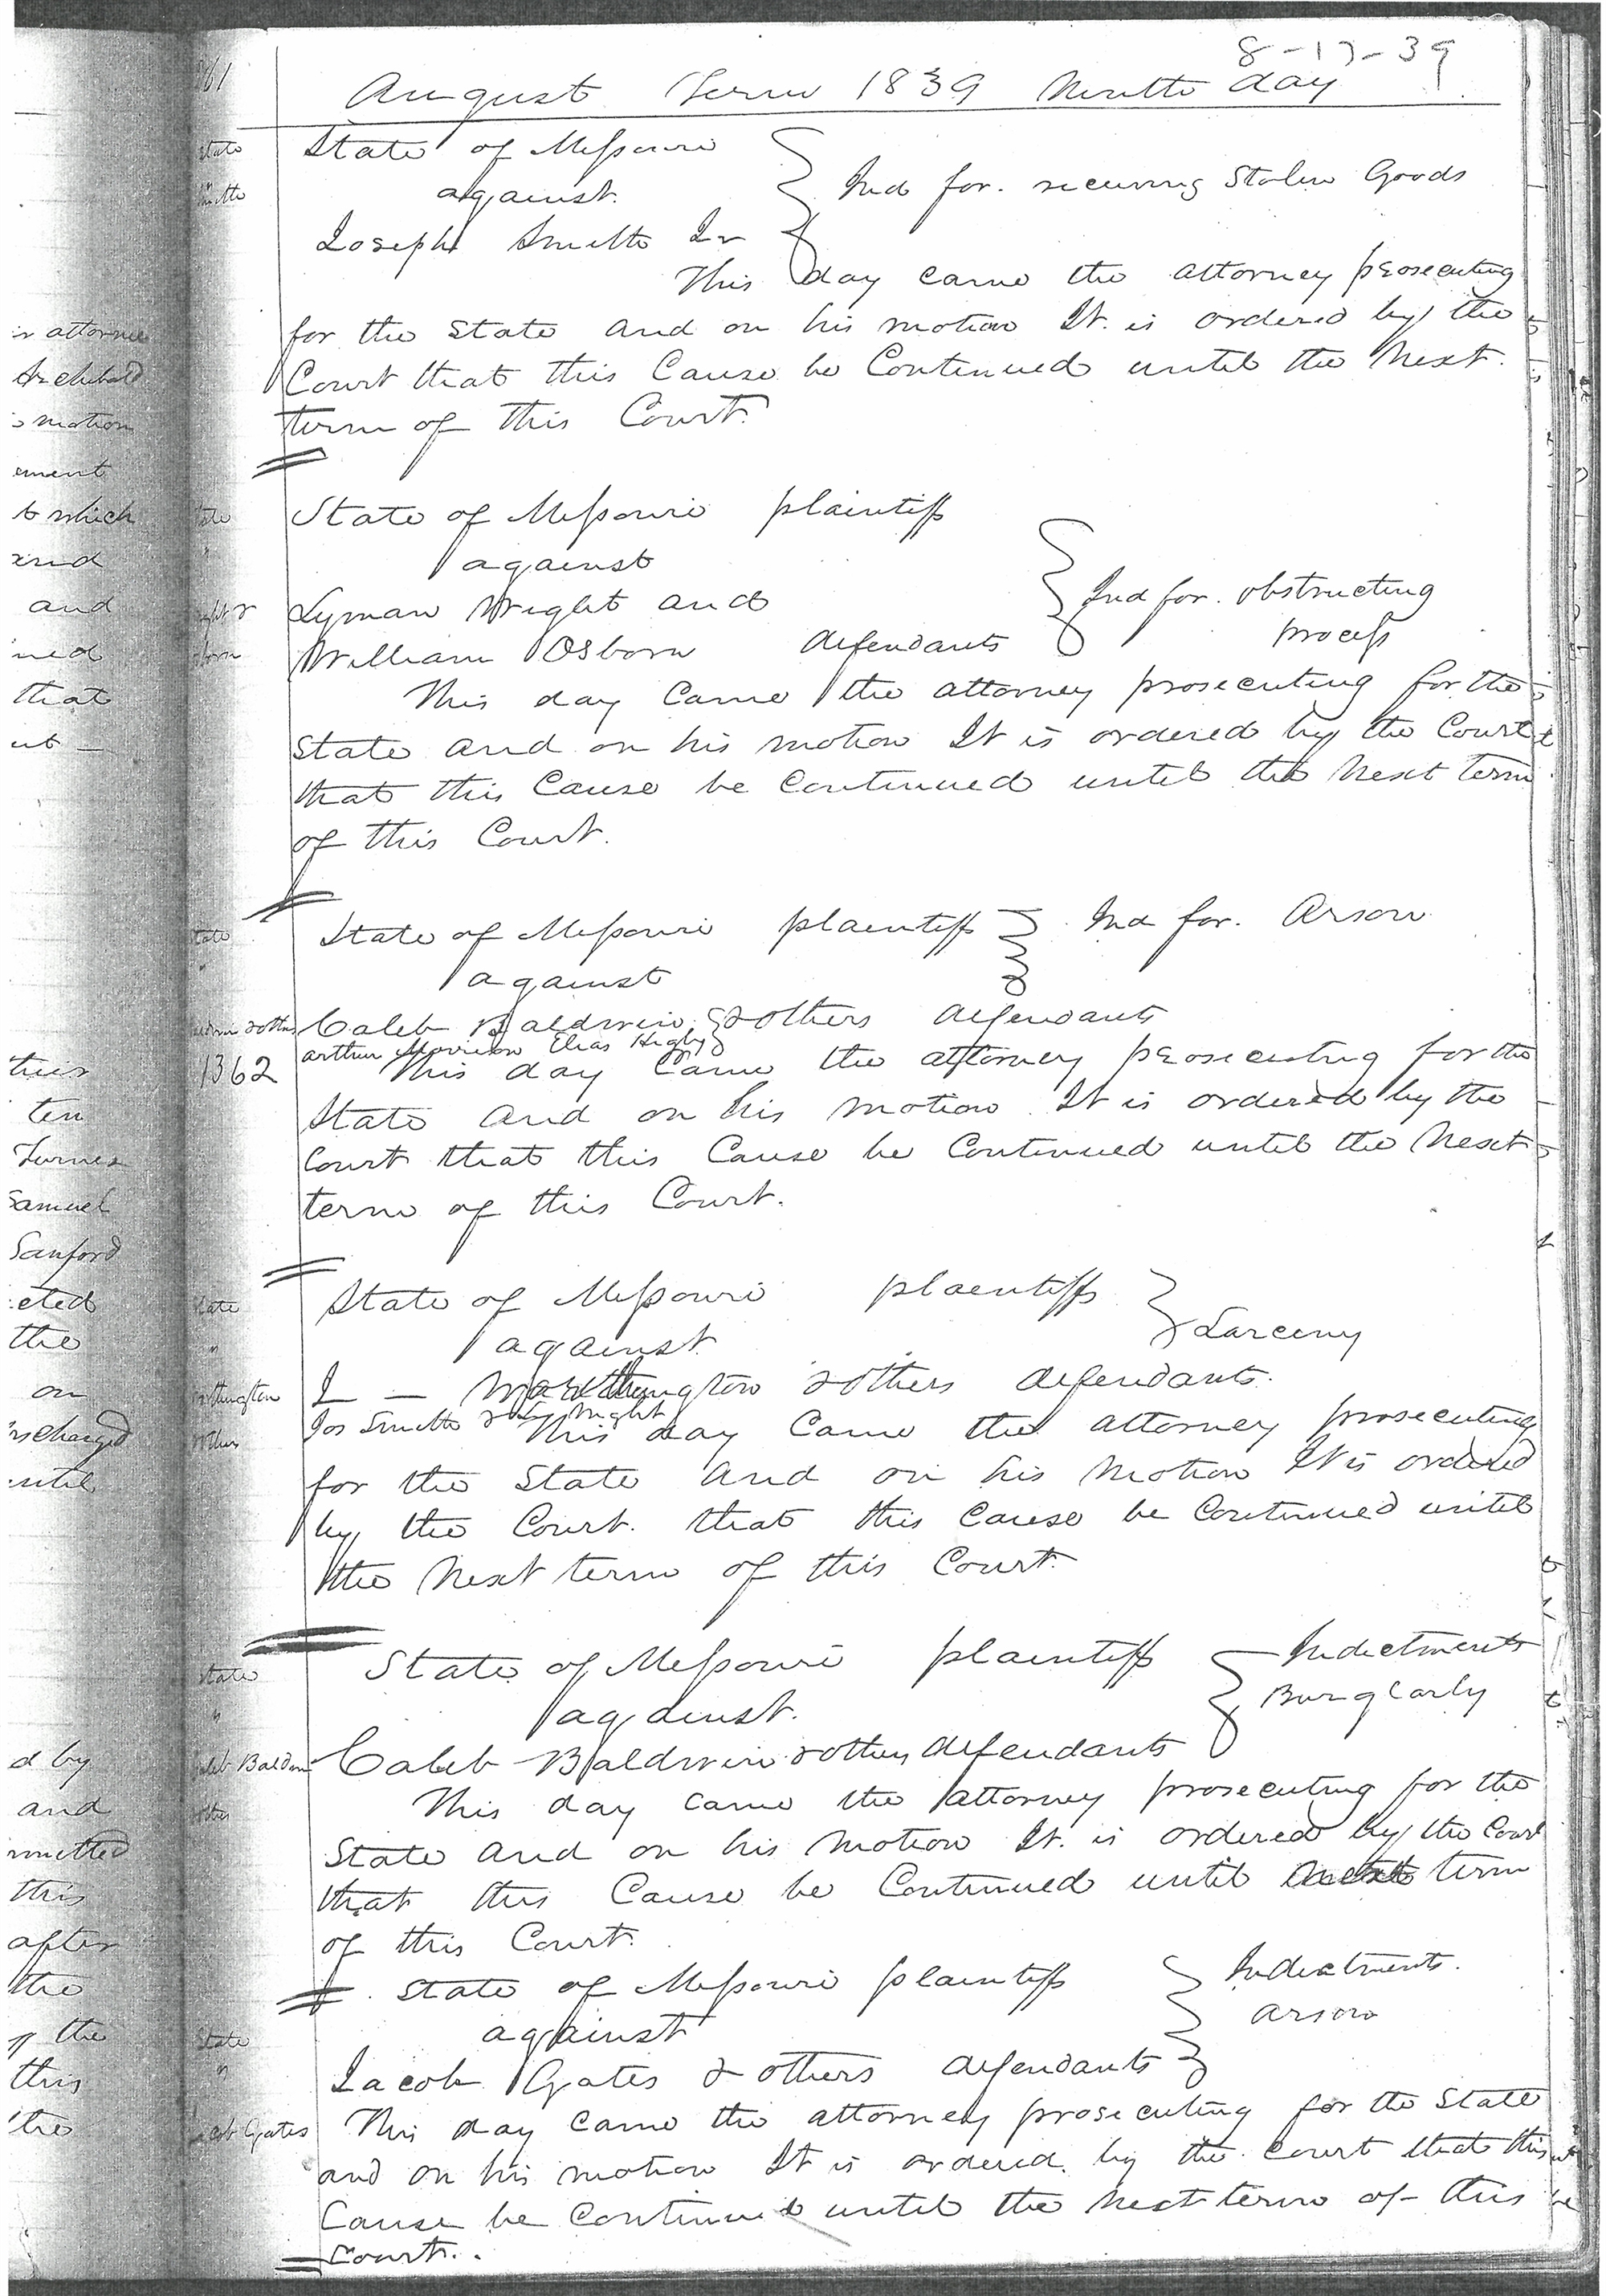 8-17-39
61
August Term 1839 Ninth day
State of Missouri
against
Joseph Smith Jr
Ind for. receiving Stolen Goods
This day came the attorney prosecuting
for the State and on his motion It is ordered by the
Court that this Cause be Continued until the Next
term of this Court.
State of Missouri plaintiff
against
Lyman Wright and
William Osborn defendants
Ind for. obstructing
process
This day Came the attorney prosecuting for the
State and on his motion It is ordered by the Court
that this Cause be Continued until the Next term
of this Court.
State of Missouri plaintiff Ind for. Arson
against
Caleb Baldwin & others defendants
arthur Morrison Elias Higby
1362
This day Came the attorney prosecuting for the
State and on his motion It is ordered by the
Court that this Cause be Continued until the Next
term of this Court.
State of Missouri plaintiff
against
Larceny
J — Worthington & others defendants.
Jos Smith & Ly Wright
This day Came the attorney prosecuting
for the State and on his Motion It is ordered
by the Court. that this Cause be Continued until
the Next term of this Court.
State of Missouri plaintiff Indictments
against. Burglarly
Caleb Baldwin & others defendants
This day came the attorney prosecuting for the
State and on his Motion It. is ordered by the Court
that this Cause be Continued until next term
of this Court.
State of Missouri plaintiff Indictments.
against arson
Jacob Gates & others defendants
This day Came the attorney prosecuting for the State
and on his motion It is ordered. by the Court that this
Cause be Continued until the Next term of this
Court.
State
Smith
State
State
1362
State
Worthington
others
State
Caleb Baldwin
others
State
Jacob Gates
attorney
Archibald
motion
which
and
and
that
this
ten
Turner
Samuel
Sanford
the
on
d by
and
this
after
the
the
this
the